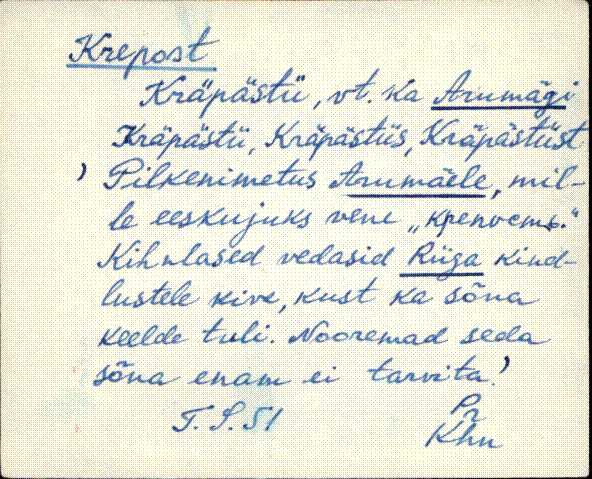 Krepost
Kräpästü, vt. ka Arumägi
Kräpästü, Kräpästüs, Kräpästüst
' Pilkenimetus Arumäele, mil-
le eeskujuks vene „крепость."
Kihnlased vedasid Riiga kind-
lustele kive, kust ka sõna
keelde tuli. Nooremad seda
sõna enam ei tarvita.'
T. S. 51 Pr
Khn